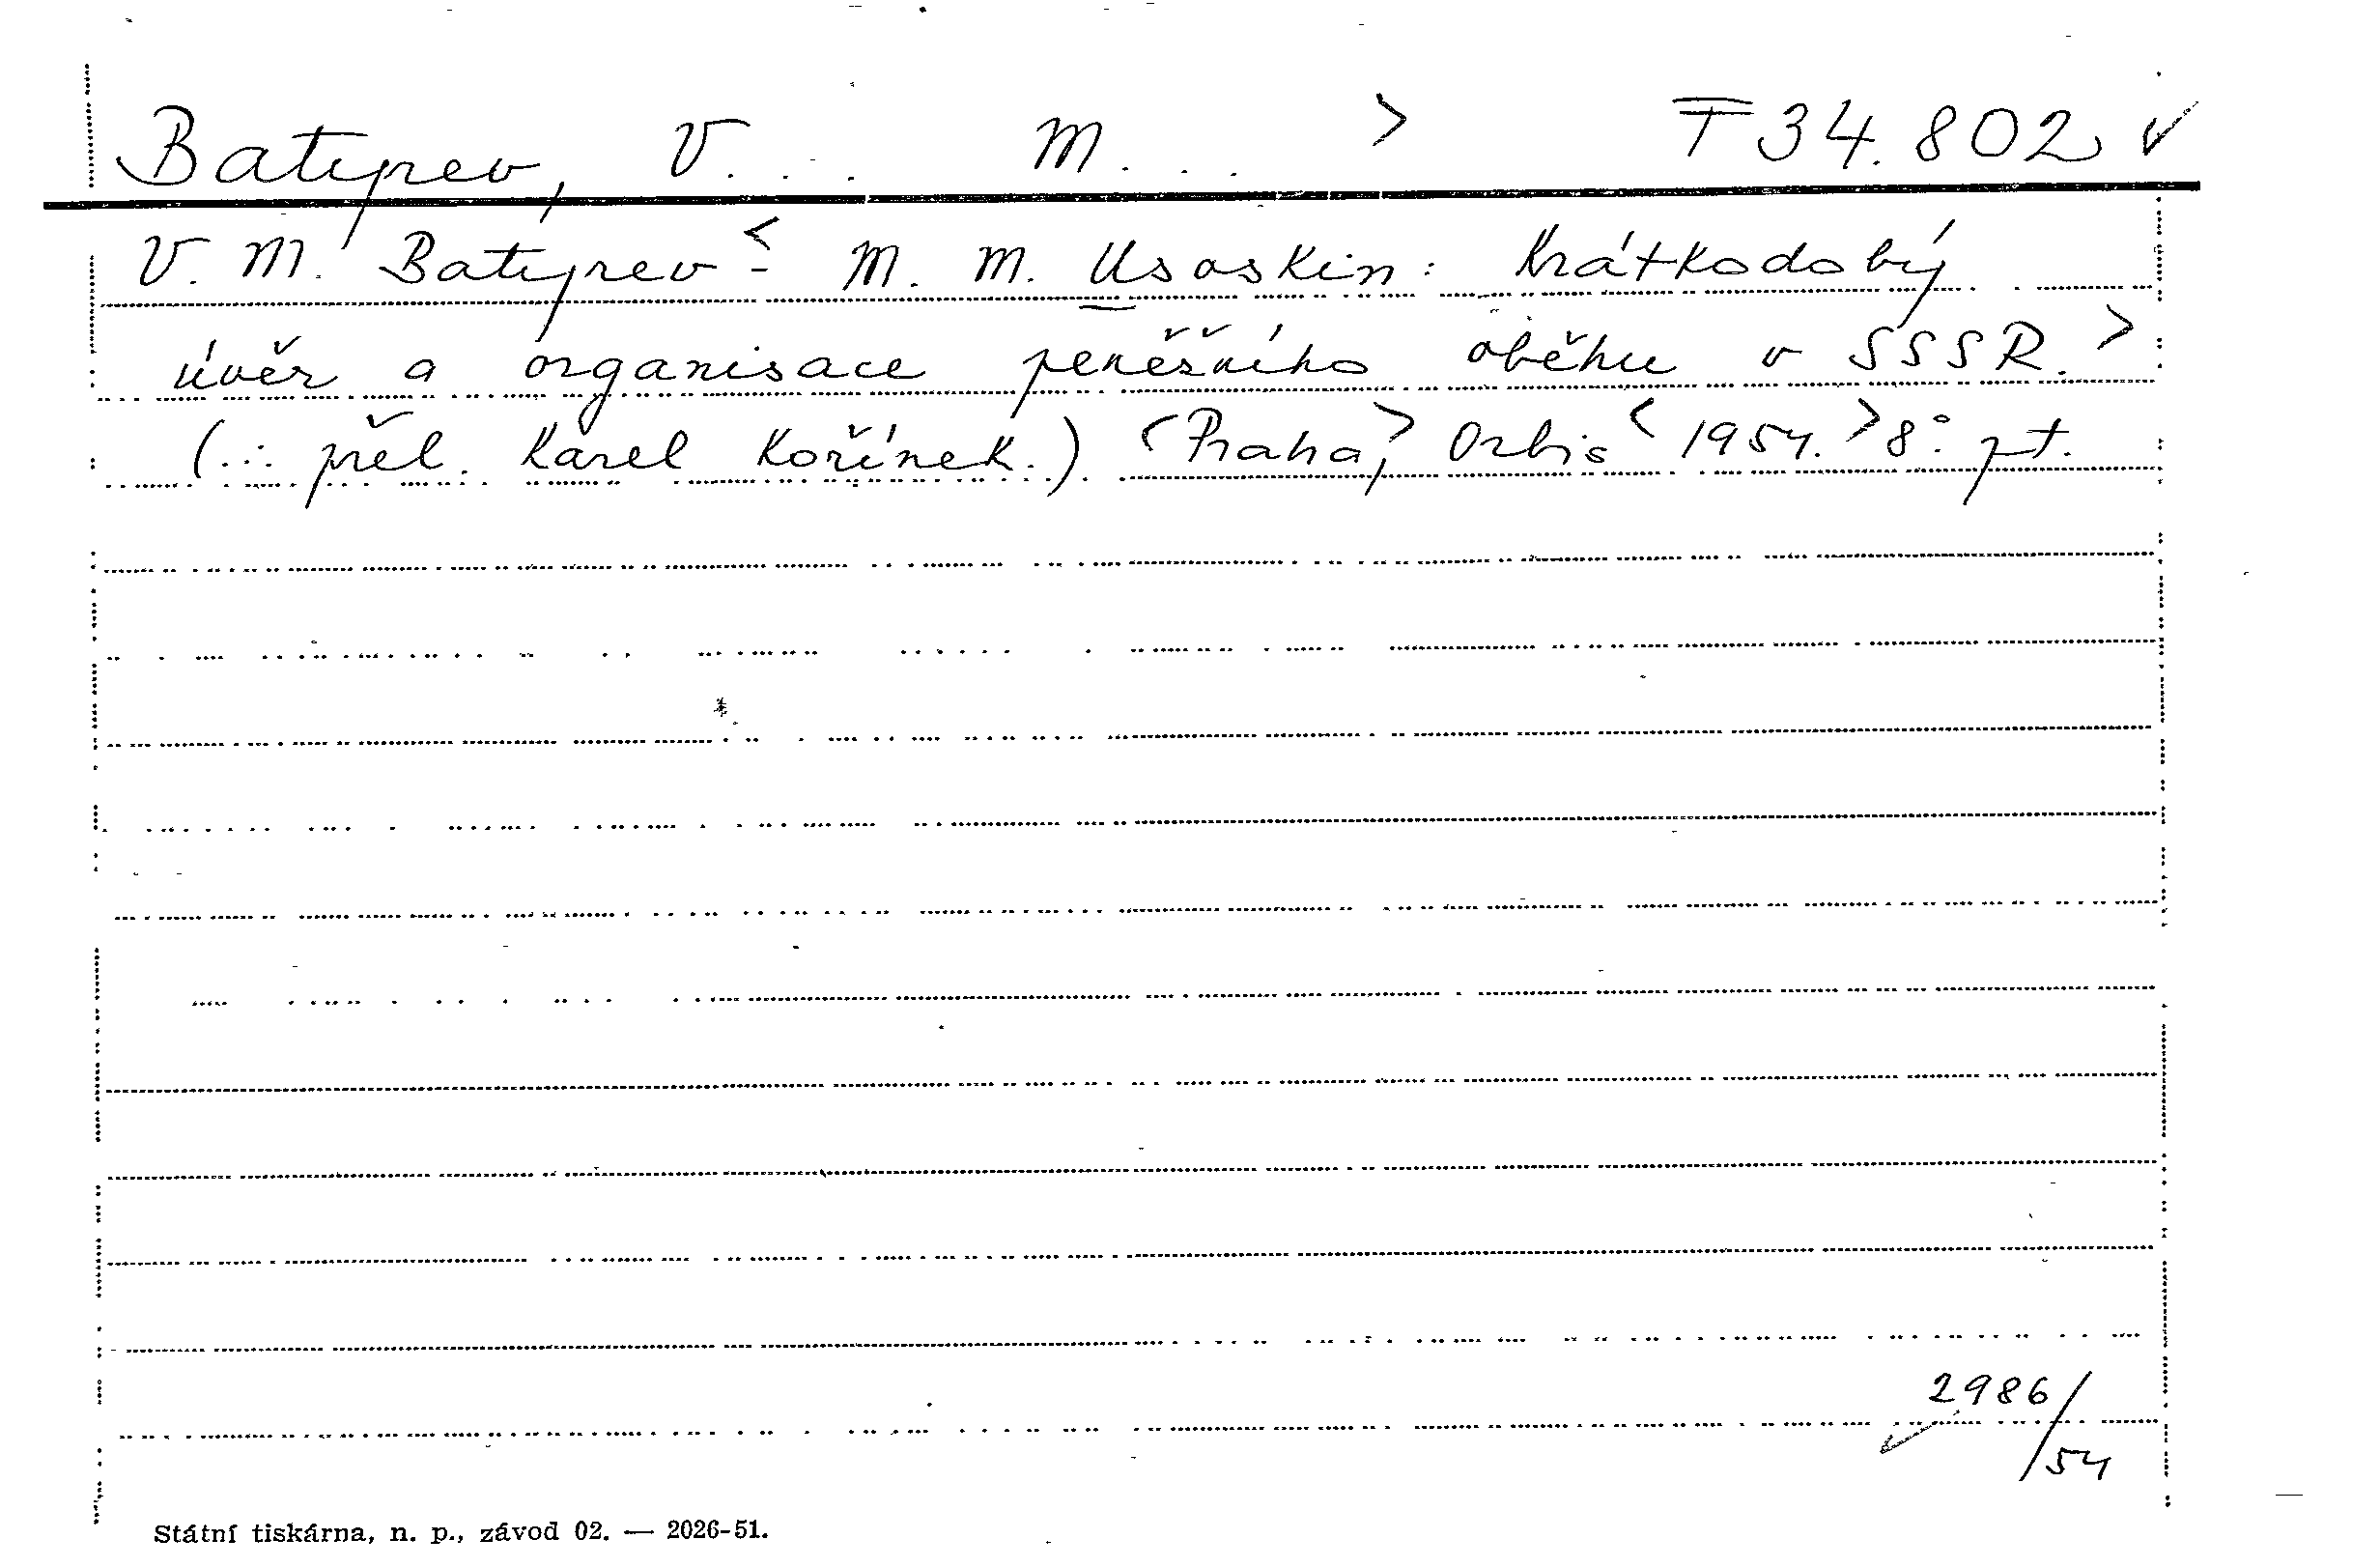 Batyrev, V. . . M. . . > T 34.802 ✓
V. M. Batyrev <- M. M. Usoskin: Krátkodobý
úvěr a organisace peněžního oběhu v SSSR. >
(... přel. Karel Kořínek.) <Praha,> Orbis <1954.> 8° pt.
2986/
/54
Státní tiskárna, n. p., závod 02. — 2026-51.